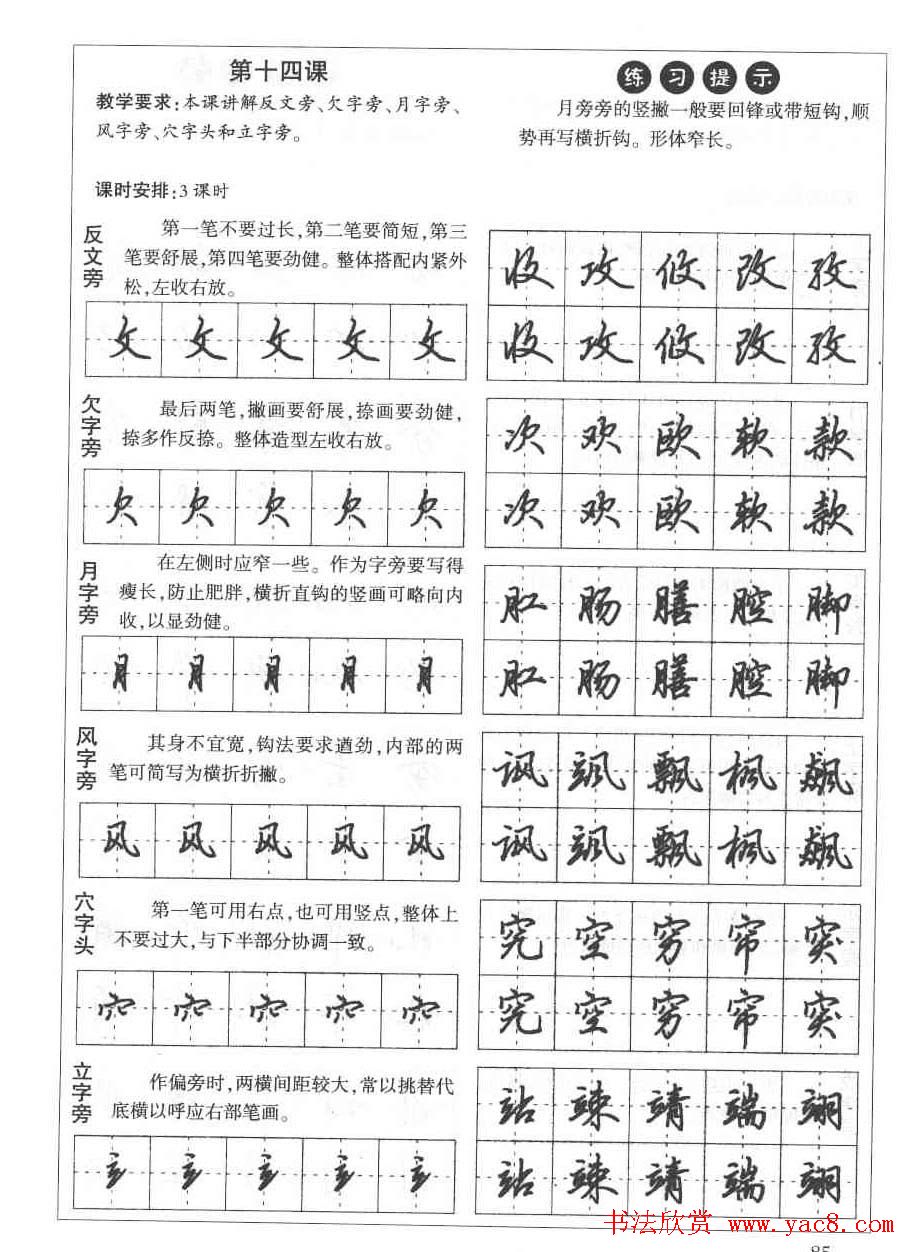 第十四课
教学要求:本课讲解反文旁、欠字旁、月字旁、
风字旁、穴字头和立字旁。
课时安排:3课时
练习提示
月旁旁的竖撇一般要回锋或带短钩,顺
势再写横折钩。形体窄长。
反文旁
第一笔不要过长,第二笔要简短,第三
笔要舒展,第四笔要劲健。整体搭配内紧外
松,左收右放。
攵 攵 攵 攵 攵
收 攻 攸 改 孜
收 攻 攸 改 孜
欠字旁
最后两笔,撇画要舒展,捺画要劲健,
捺多作反捺。整体造型左收右放。
欠 欠 欠 欠 欠
次 欢 欧 软 款
次 欢 欧 软 款
月字旁
在左侧时应窄一些。作为字旁要写得
瘦长,防止肥胖,横折直钩的竖画可略向内
收,以显劲健。
月 月 月 月 月
肛 肠 膳 腔 脚
肛 肠 膳 腔 脚
风字旁
其身不宜宽,钩法要求遒劲,内部的两
笔可简写为横折折撇。
风 风 风 风 风
讽 飒 飘 枫 飙
讽 飒 飘 枫 飙
穴字头
第一笔可用右点,也可用竖点,整体上
不要过大,与下半部分协调一致。
穴 穴 穴 穴 穴
究 空 穷 帘 突
究 空 穷 帘 突
立字旁
作偏旁时,两横间距较大,常以挑替代
底横以呼应右部笔画。
立 立 立 立 立
站 竦 靖 端 翊
站 竦 靖 端 翊
书法欣赏 www.yac8.com
85